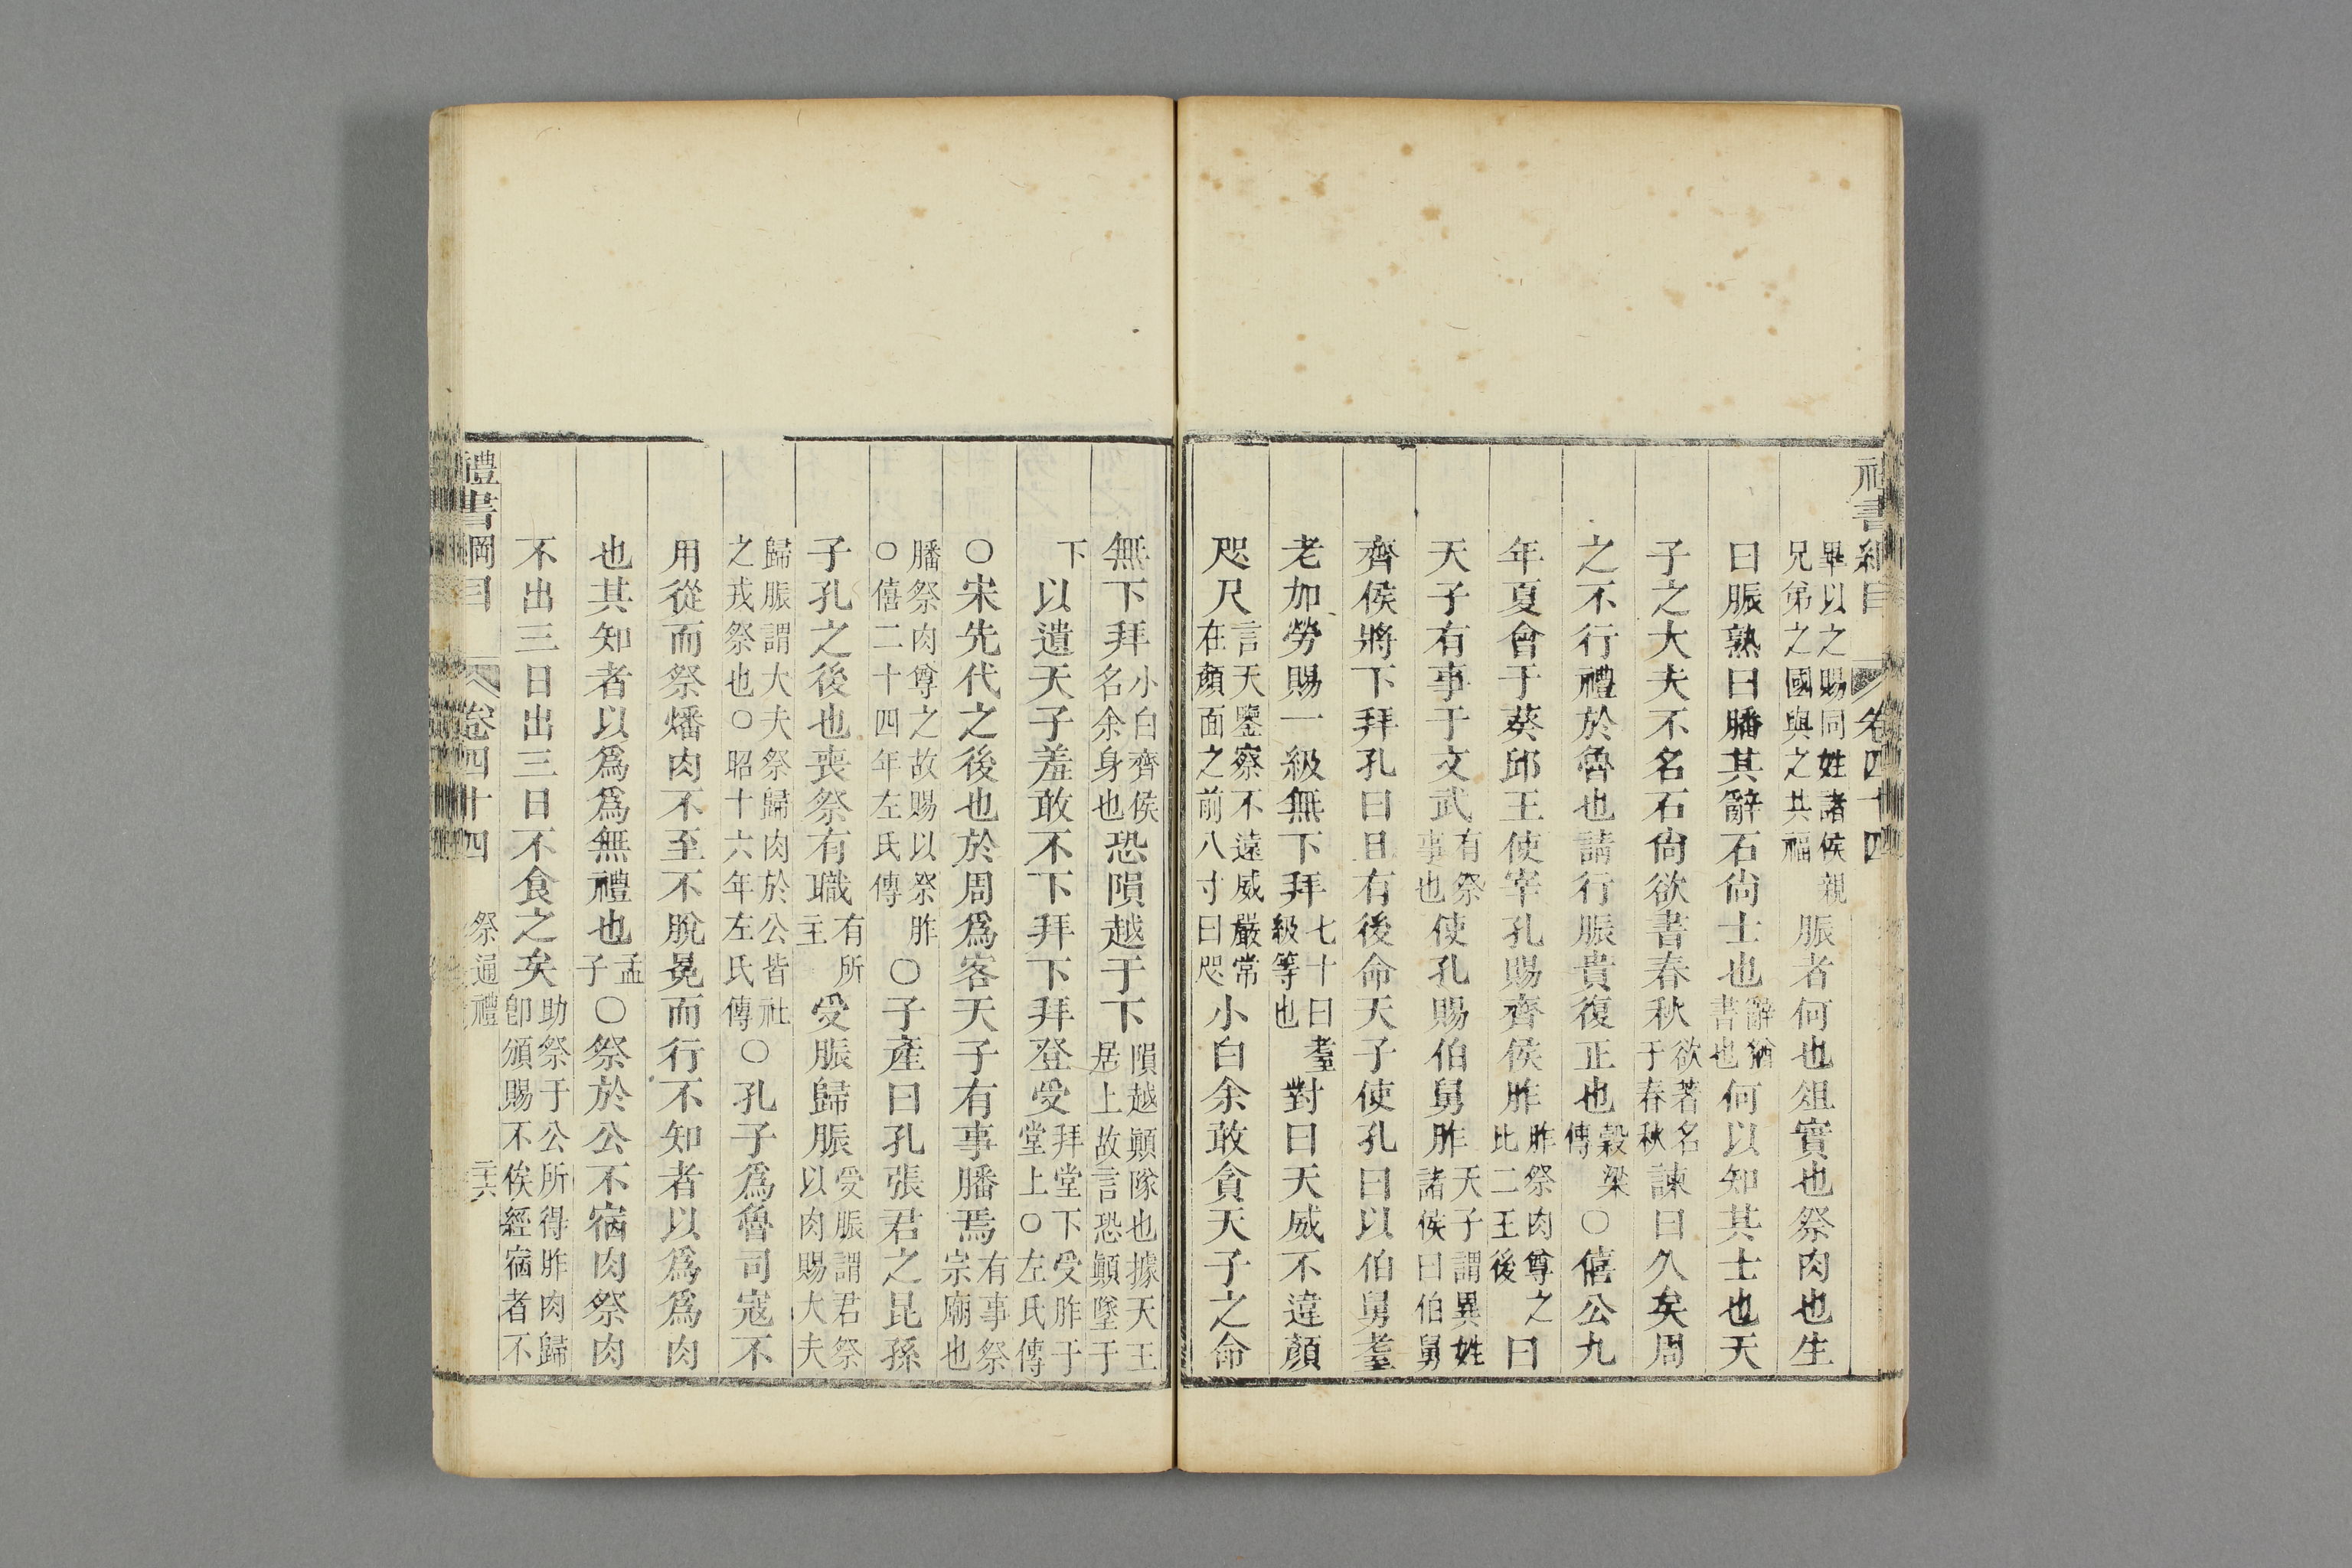 禮書綱目 卷四十四
畢以之賜同姓諸侯親兄弟之國與之共福脤者何也俎實也祭肉也生
曰脤熟曰膰其辭石尙士也辭猶書也何以知其士也天
子之大夫不名石尙欲書春秋欲著名于春秋諫曰久矣周
之不行禮於魯也請行脤貴復正也穀梁傳○僖公九
年夏會于葵邱王使宰孔賜齊侯胙胙祭肉尊之比二王後曰
天子有事于文武有祭事也使孔賜伯舅胙天子謂異姓諸侯曰伯舅
齊侯將下拜孔曰且有後命天子使孔曰以伯舅耋
老加勞賜一級無下拜七十曰耋級等也對曰天威不違顏
咫尺言天鑒察不遠威嚴常在顏面之前八寸曰咫小白余敢貪天子之命
無下拜小白齊侯名余身也恐隕越于下隕越顚隊也據天王居上故言恐顚墜于
下以遺天子羞敢不下拜下拜登受拜堂下受胙于堂上○左氏傳
○宋先代之後也於周爲客天子有事膰焉有事祭宗廟也
膰祭肉尊之故賜以祭胙○僖二十四年左氏傳○子產曰孔張君之昆孫
子孔之後也喪祭有職有所主受脤歸脤受脤謂君祭以肉賜大夫
歸脤謂大夫祭歸肉於公皆社之戎祭也○昭十六年左氏傳○孔子爲魯司寇不
用從而祭燔肉不至不脫冕而行不知者以爲爲肉
也其知者以爲爲無禮也孟子○祭於公不宿肉祭肉
不出三日出三日不食之矣助祭于公所得胙肉歸卽頒賜不俟經宿者不
禮書綱目 卷四十四 祭通禮 二十六